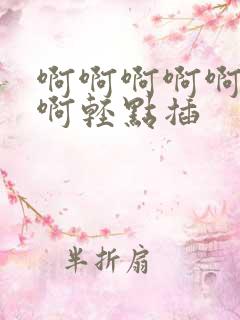 啊啊啊啊啊
啊轻點插
半折扇